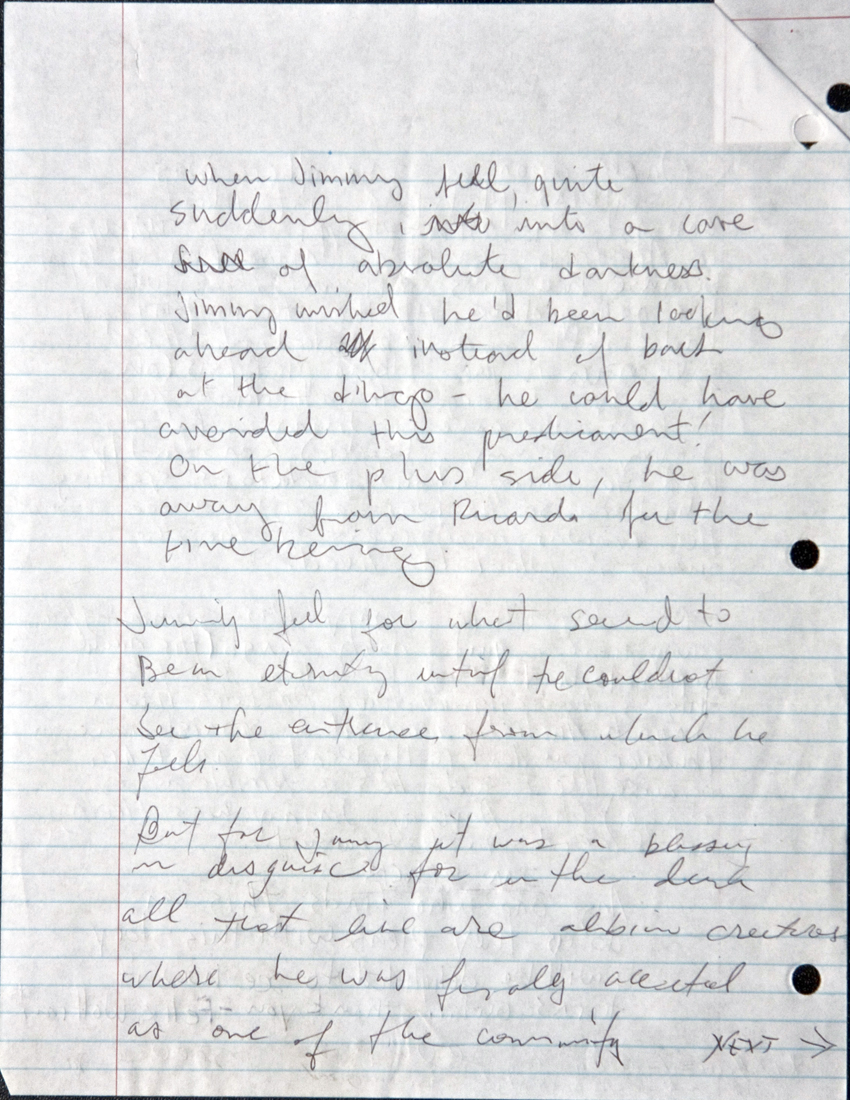 when Jimmy fell, quite
suddenly, into a cave
of absolute darkness.
Jimmy wished he'd been looking
ahead instead of back
at the dingo - he could have
avoided this predicament!
On the plus side, he was
away from Ricardo for the
time being.
Jimmy fell for what seemed to
Be an eternity until he couldnot
see the entrance from which he
fell.
But for Jimmy it was a blessing
in disguise for in the dark
all that live are albino creatures
where he was finally accepted
as one of the community NEXT →